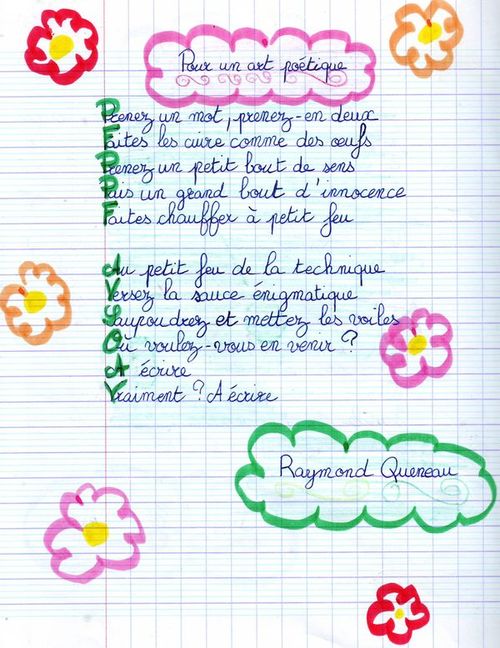 Pour un art poétique
Prenez un mot, prenez-en deux
Faites les cuire comme des œufs
Prenez un petit bout de sens
Puis un grand bout d'innocence
Faites chauffer à petit feu
Au petit feu de la technique
Versez la sauce énigmatique
Saupoudrez et mettez les voiles
Où voulez-vous en venir ?
A écrire
Vraiment ? A écrire
Raymond Queneau